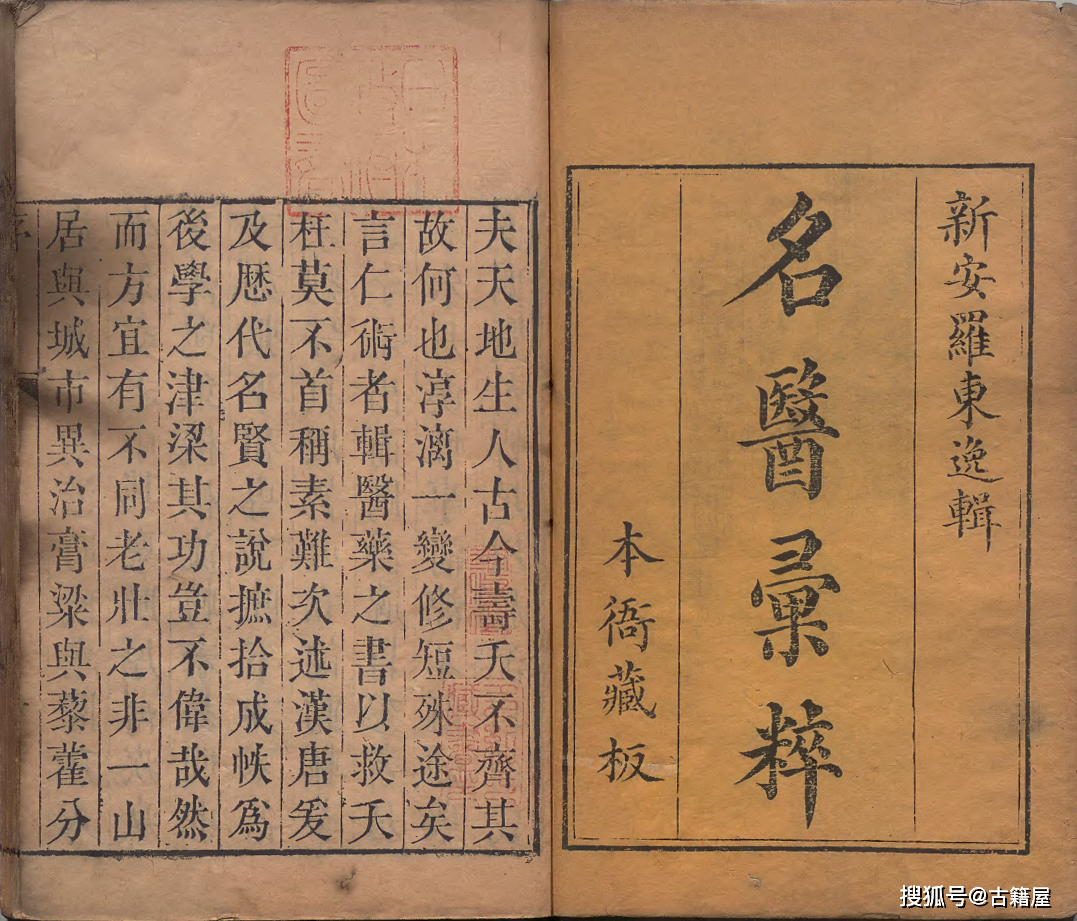 新安羅東逸輯
名醫彙粹
本衙藏板
夫天地生人古今壽夭不齊其
故何也淳漓一變修短殊途矣
言仁術者輯醫藥之書以救夭
枉莫不首稱素難次述漢唐爰
及歷代名賢之說摭拾成帙爲
後學之津梁其功豈不偉哉然
而方宜有不同老壯之非一山
居與城市異治膏粱與藜藿分
序
搜狐号@古籍屋